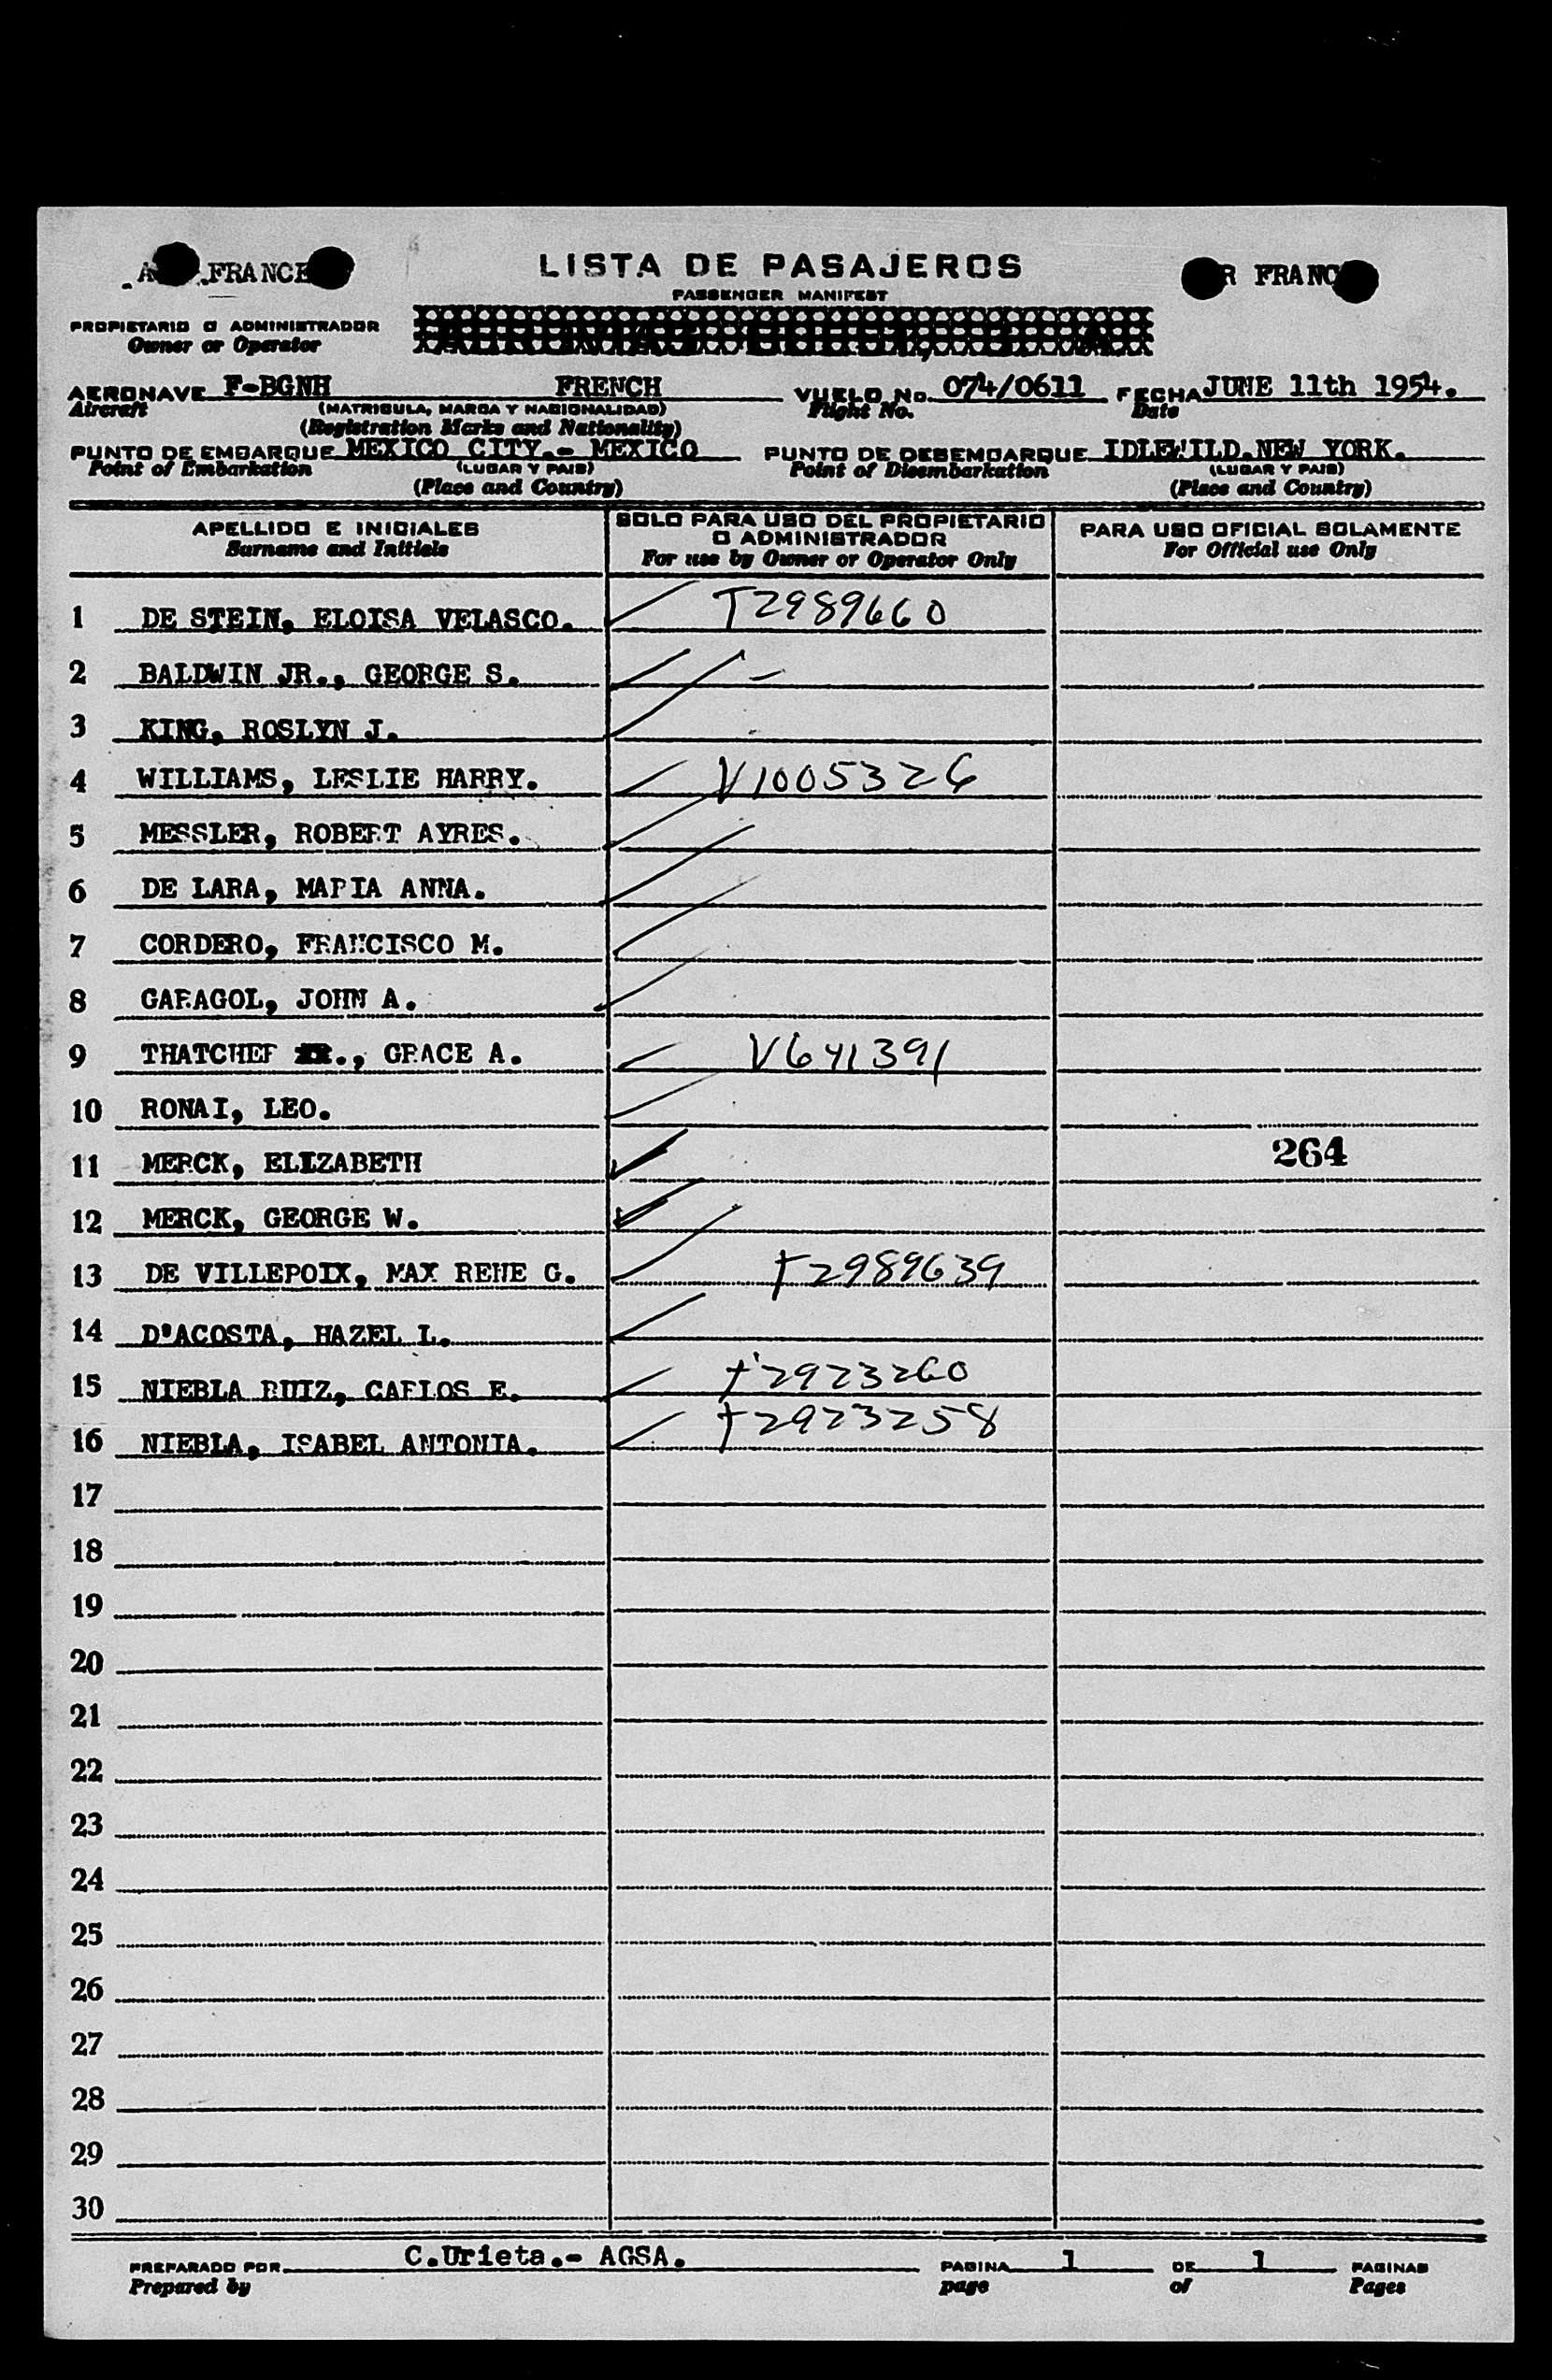 FRANCE
LISTA DE PASAJEROS
R FRANC
PASSENGER MANIFEST
PROPIETARIO O ADMINISTRADOR
Owner or Operator
AERONAVE F-BGNH FRENCH VUELO No. 074/0611 FECHA JUNE 11th 1954.
Aircraft (MATRICULA, MARCA Y NACIONALIDAD) Flight No. Date
(Registration Marks and Nationality)
PUNTO DE EMBARQUE MEXICO CITY.- MEXICO PUNTO DE DESEMBARQUE IDLEWILD.NEW YORK.
Point of Embarkation (LUGAR Y PAIS) Point of Disembarkation (LUGAR Y PAIS)
(Place and Country) (Place and Country)
APELLIDO E INICIALES SOLO PARA USO DEL PROPIETARIO O ADMINISTRADOR PARA USO OFICIAL SOLAMENTE
Surname and Initials For use by Owner or Operator Only For Official use Only
1 DE STEIN, ELOISA VELASCO. T2989660
2 BALDWIN JR., GEORGE S. -
3 KING, ROSLYN J.
4 WILLIAMS, LESLIE HARRY. V1005326
5 MESSLER, ROBERT AYRES.
6 DE LARA, MARIA ANNA.
7 CORDERO, FRANCISCO M.
8 GARAGOL, JOHN A.
9 THATCHER ., GRACE A. V641391
10 RONAI, LEO.
11 MERCK, ELIZABETH 264
12 MERCK, GEORGE W.
13 DE VILLEPOIX, MAX RENE G. T2989639
14 D'ACOSTA, HAZEL L.
15 NIEBLA RUIZ, CARLOS E. T2923260
16 NIEBLA, ISABEL ANTONIA. T2923258
17
18
19
20
21
22
23
24
25
26
27
28
29
30
PREPARADO POR C.Urieta.- AGSA. PAGINA 1 DE 1 PAGINAS
Prepared by page of Pages